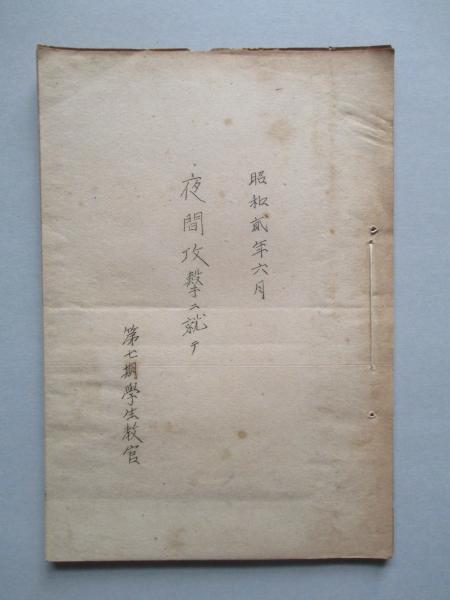 昭和貳年六月
夜間攻撃ニ就テ
第七期學生教官